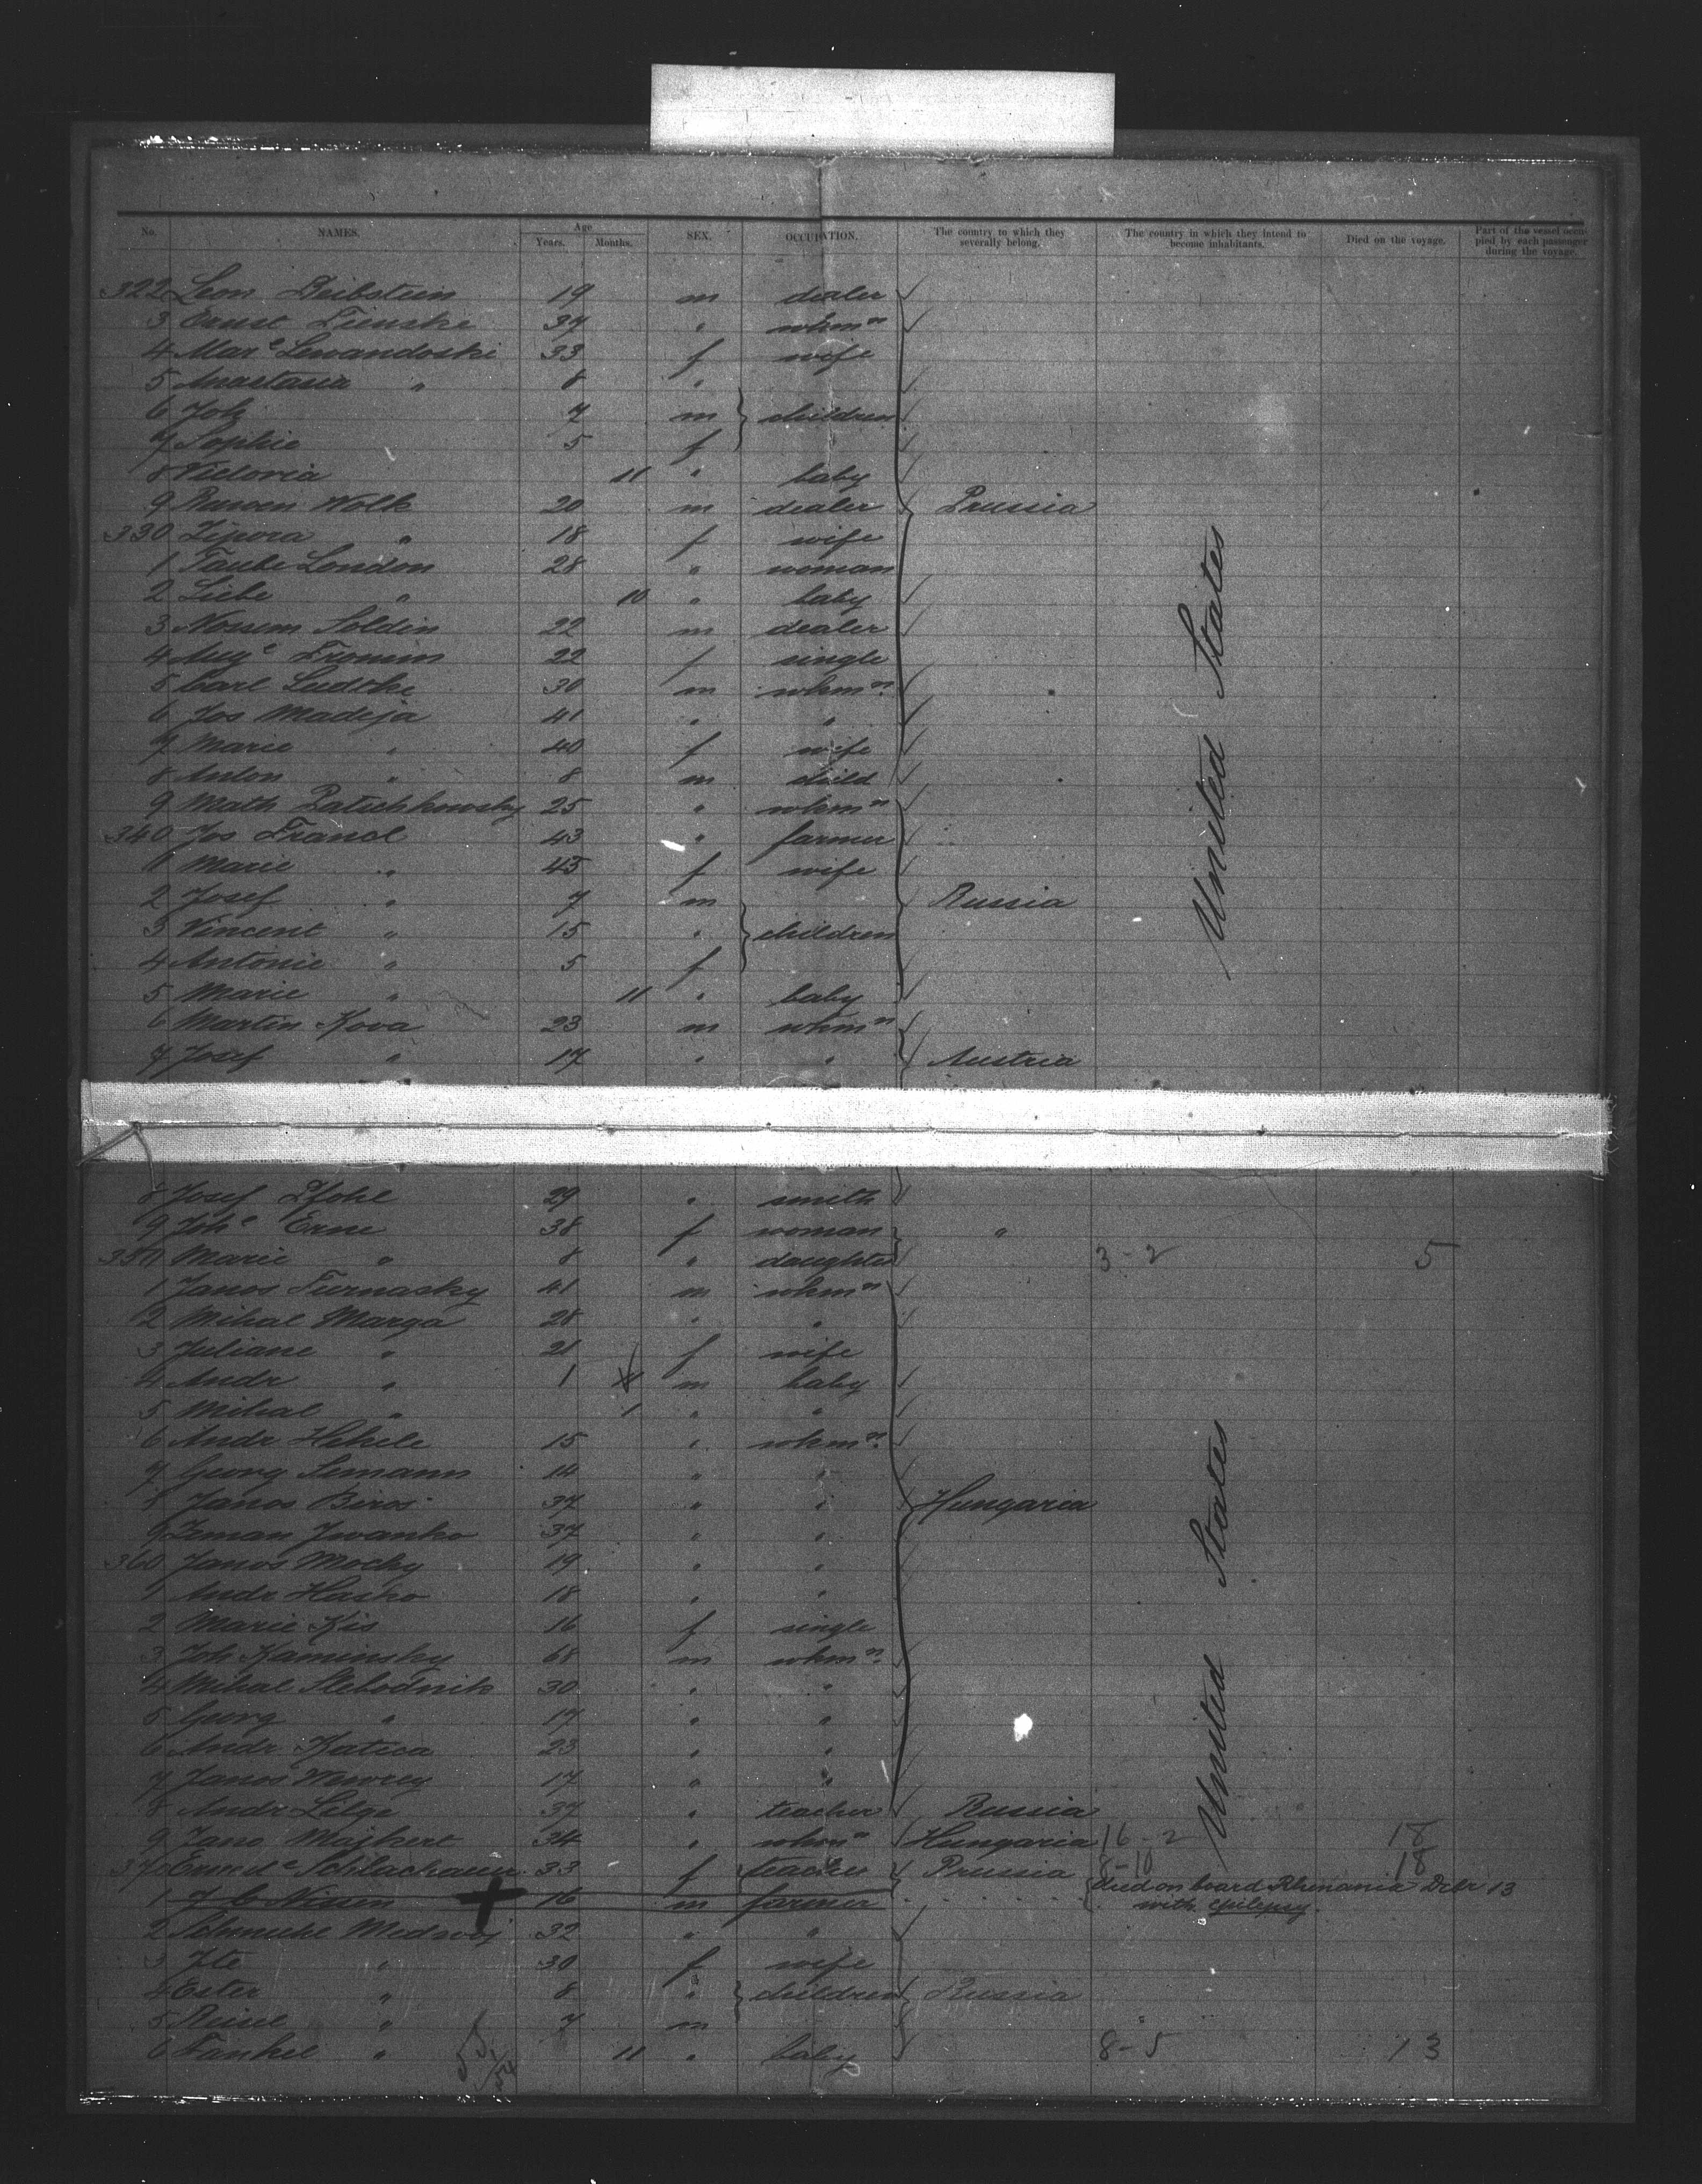 No. NAMES. Age Years. Months. SEX. OCCUPATION. The country to which they severally belong. The country in which they intend to become inhabitants. Died on the voyage. Part of the vessel occupied by each passenger during the voyage.
322 Leon Beibstein 19 m dealer
3 Ernst Lienske 34 " wkmn
4 Mare Lewandoski 33 f wife
5 Anastasia " 8 "
6 Joh 7 m children
7 Sophie 5 f
8 Victoria 11 " baby
9 Ruwen Wolk 20 m dealer Prussia
330 Zipora " 18 f wife
1 Taube London 28 " woman
2 Liebe " 10 " baby
3 Nossem Soldin 22 m dealer
4 Auge Fromm 22 f single
5 Carl Ludtke 30 m wkmn
6 Jos Madeja 41 " "
7 Marie " 40 f wife
8 Anton " 8 m child
9 Math Patschkowsky 25 " wkmn
340 Jos Francl 43 " farmer
1 Marie " 45 f wife
2 Josef " 7 m Russia
3 Vincent " 15 " children
4 Antonie " 5 f
5 Marie " 11 " baby
6 Martin Kova 23 m wkmn
7 Josef " 17 " " Austria
United States
8 Josef Pfohl 29 " smith
9 Johe Erne 38 f woman "
350 Marie " 8 " daughter 3-2 5
1 Janos Furnasky 41 m wkmn
2 Mihal Marga 28 " "
3 Juliane " 21 f wife
4 Andr " 1 m baby
5 Mihal " 1 " "
6 Andr Hekele 15 " wkmn
7 Georg Semann 14 " "
8 Janos Biros 37 " " Hungaria
9 Zeman Jwanko 37 " "
360 Janos Mocky 19 " "
1 Andr Hasko 18 " "
2 Marie Kis 16 f single
3 Joh Kaminsky 68 m wkmn
4 Mihal Slebodnik 30 " "
5 Georg " 17 " "
6 Andr Katica 23 " "
7 Janos 17 " "
8 Andr Lelge 37 " teacher Russia
9 Jano Majkert 34 " wkmn Hungaria 16-2 18
370 Schlachaun 33 f teacher Prussia 8-10 18
1 J C Nissen 16 m farmer died on board Rhenania Debr 13
with epilepsy.
2 Schmuhl Medwoj 32 " "
3 Jte " 30 f wife
4 Ester " 8 " children Russia
5 Reisel " 7 m
6 Fankel " 11 " baby 8-5 13
United States